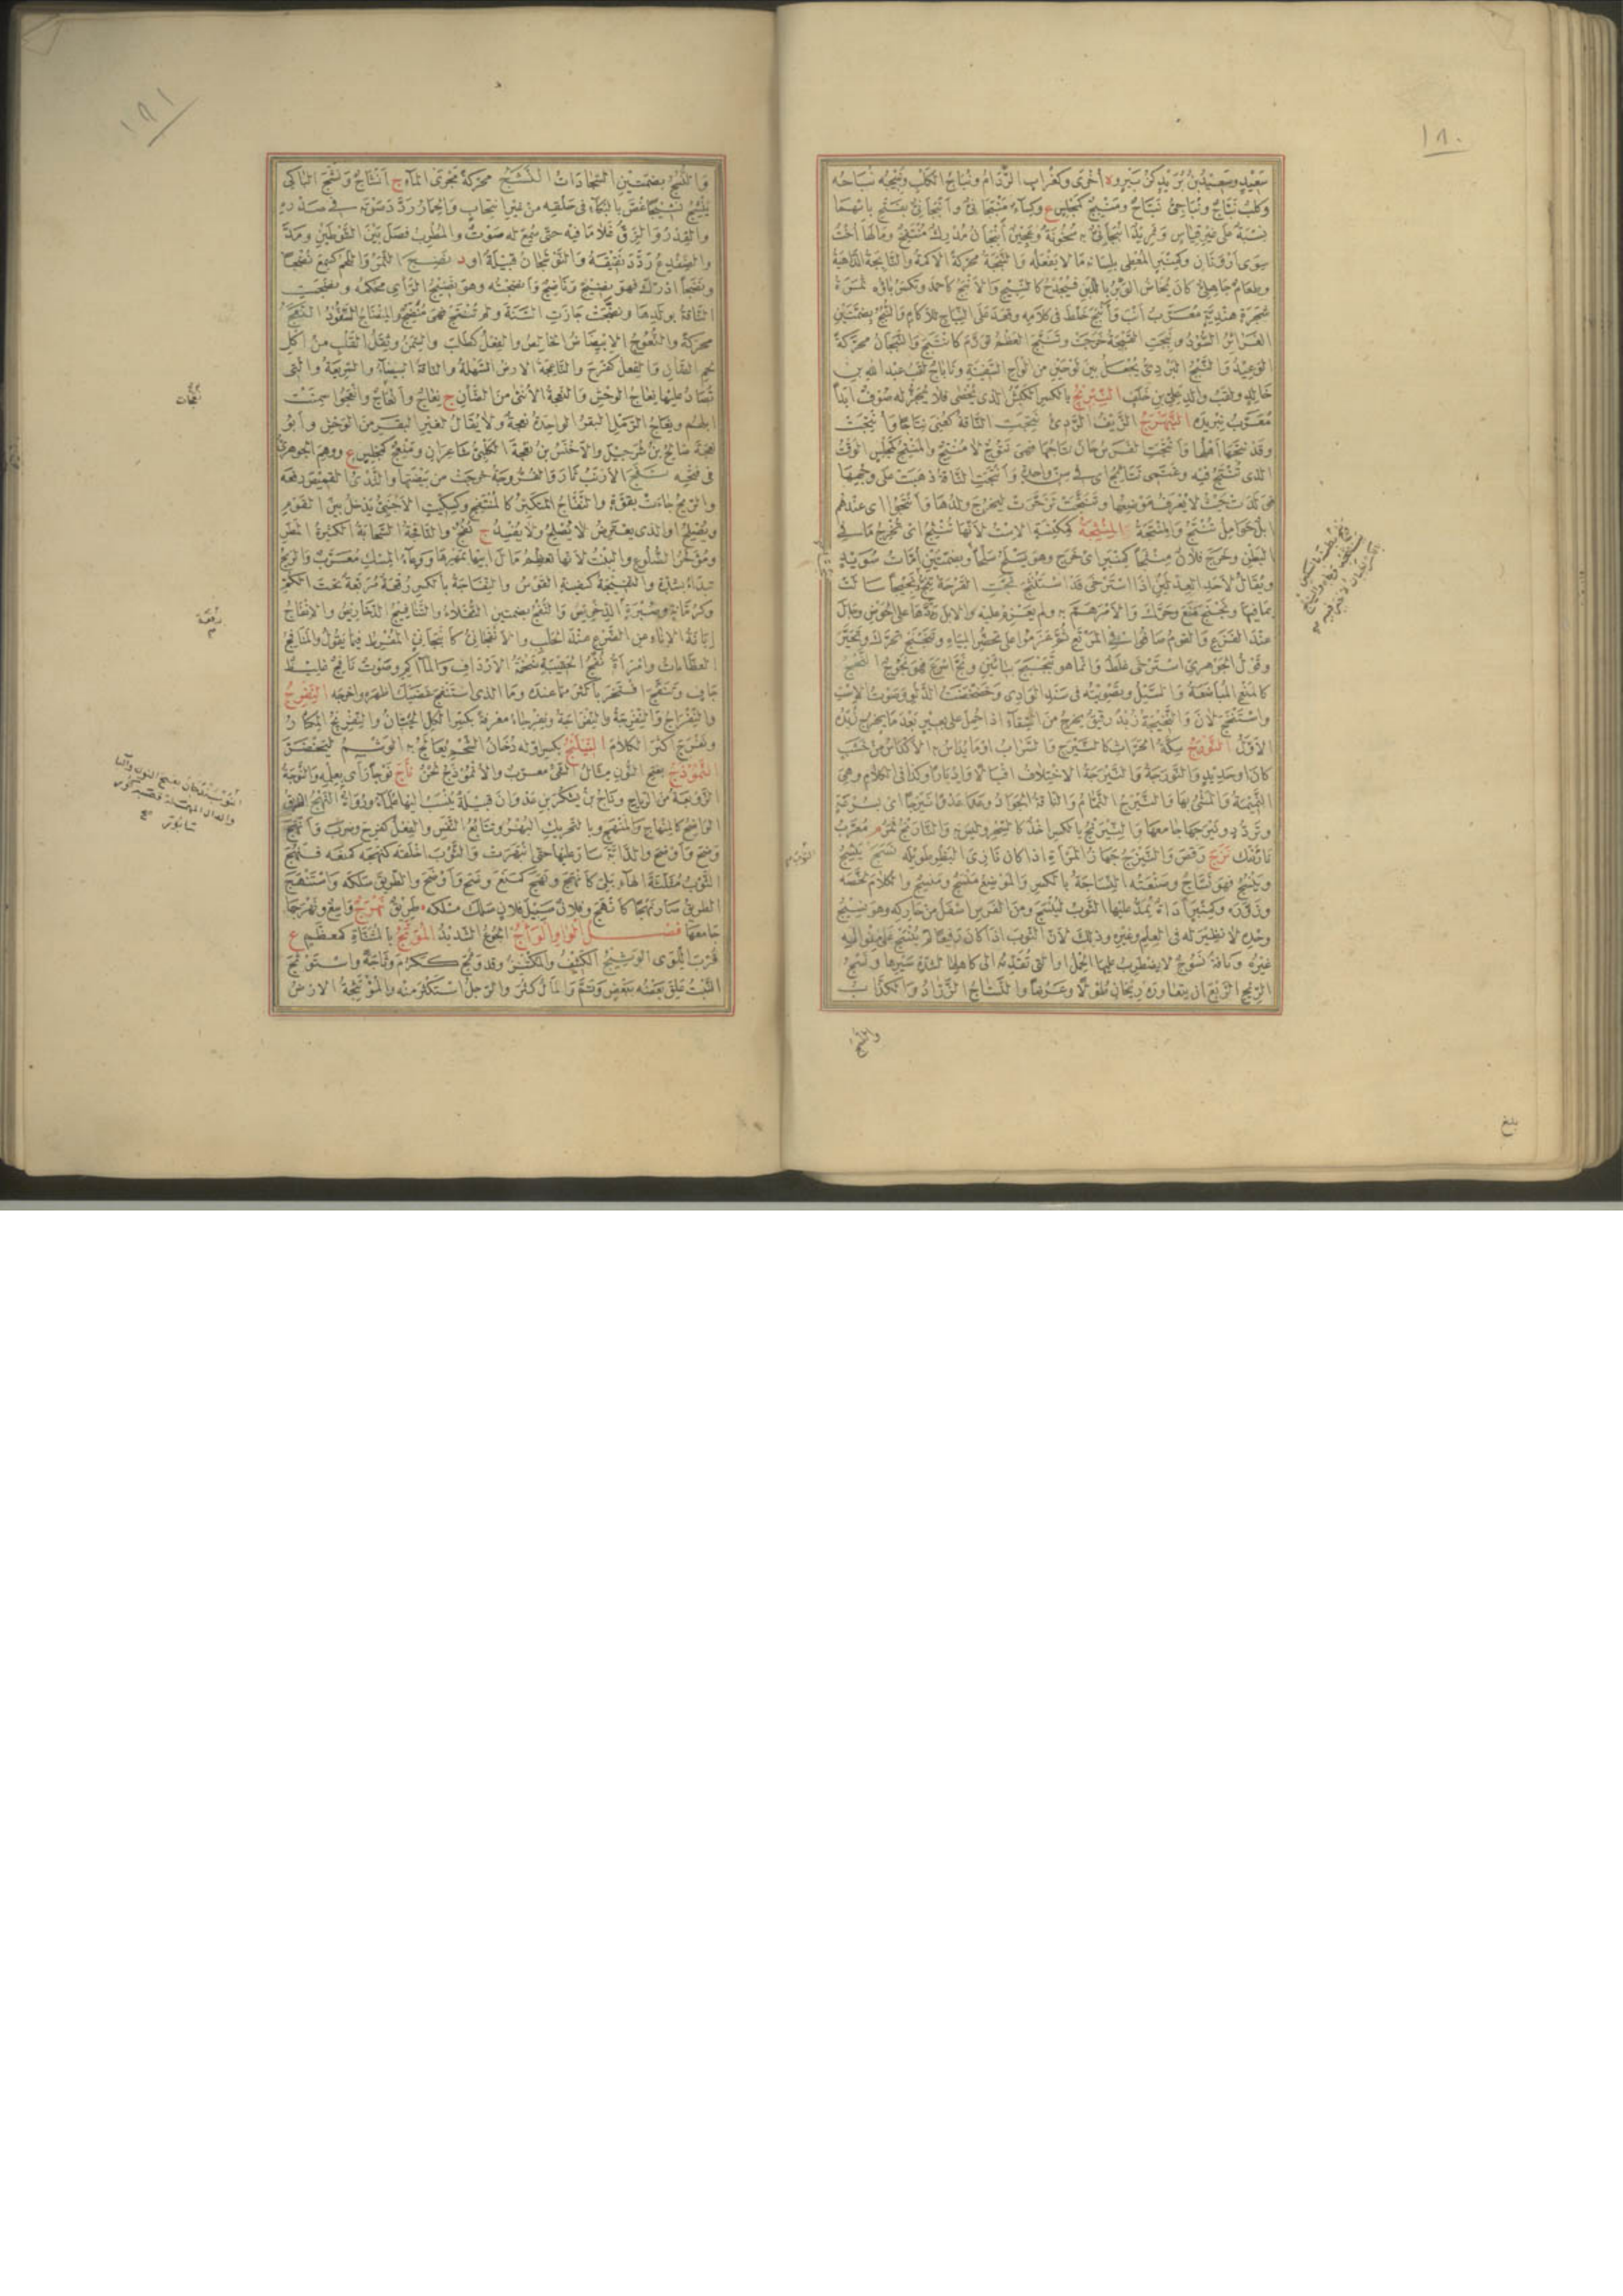 ١٨٠
سَعِيْدٍ وسَعِيْدُ بنُ بُرَيْدٍ كزُبَيْرٍ وة أُخْرَى وكغُرابٍ الرُّدَامُ ونُباحُ الكَلْبِ ونَبِيْجُه نُبَاحُه
وكَلْبٌ نَبَّاجٌ ونُباجِيٌّ نَبَّاحٌ ومَنْبِجٌ كمَجْلِسٍ ع وكِساءٌ مَنْبَجانِيٌّ وأَنْبَجانِيٌّ بفتح بائهما
نِسْبَةٌ على غيرِ قِياسٍ وثَرِيْدٌ أَنْبَجانِيٌّ به سُخُونَةٌ وعَجِيْنٌ أَنْبَجانٌ مُدْرِكٌ مُنْتَفِخٌ ومالها أُخْتٌ
سِوَى أَرْوَنانٍ وكمِنْبَرٍ المُعْطِي بلِسانه ما لا يَفْعَلُه والنَّبَجَةُ محرّكةً الأَكَمَةُ والنابِجَةُ الدّاهِيَةُ
وطَعامٌ جاهِلِيٌّ كان يُخاضُ الوَبَرُ باللَّبَنِ فيُجْدَحُ كالنَّبِيْجِ والأَنْبَجُ كأحمدَ وتُكْسَرُ باؤُه ثَمَرَةُ
شجرةٍ هِنْدِيَّةٍ مُعَرَّبُ أَنْب وأَنْبَجَ خَلَطَ في كلامِه وقَعَدَ على النِّباجِ للآكامِ والنُّبُجُ بضمتين
الغَرائِرُ السُّوْدُ ونَبَجَتِ القَبَجَةُ خَرَجَتْ وتَنَبَّجَ العَظْمُ تَوَرَّمَ كانْتَبَجَ والنَّبَجانُ محرّكةً
الوَعِيْدُ والنَّبْجُ البَرْدِيُّ يُجْعَلُ بين لَوْحَيْنِ من أَلْواحِ السَّفِيْنَةِ ونابَاجُ لَقَبُ عبدِ الله بنِ
خالِدٍ ولَقَبُ والِدِ عليِّ بنِ خَلَفٍ النِّبْرِيْجُ بالكسر الكَبْشُ الذي يُخْصَى فلا يُجَزُّ له صُوْفٌ أَبَداً
مُعَرَّبُ نِبْرِيْدَه النَّبَهْرَجُ الزَّيْفُ الرَّدِيءُ نُتِجَتِ النّاقةُ كعُنِيَ نِتاجاً وأُنْتِجَتْ
وقد نَتَجَها أَهْلُها وأَنْتَجَتِ الفَرَسُ حانَ نِتاجُها فهي نَتُوْجٌ لا مُنْتِجٌ والمَنْتِجُ كمَجْلِسٍ الوَقْتُ
الذي تُنْتَجُ فيه وغَنَمِي نَتائِجُ أي في سِنٍّ واحِدَةٍ وأَنْتَجَتِ النّاقةُ ذَهَبَتْ على وَجْهِها
فوَلَدَتْ حَيْثُ لا يُعْرَفُ مَوْضِعُها وتَنَتَّجَتْ تَزَحَّرَتْ ليَخْرُجَ وَلَدُها وأَنْتَجُوا أي عندهم
إِبِلٌ حَوامِلُ تُنْتَجُ المِنْثَجَةُ كمِكْنَسَةٍ الاسْتُ لأنّها تَنْثِجُ أي تُخْرِجُ ما في
البَطْنِ وخَرَجَ فُلانٌ مِنْثَجاً كمِنْبَرٍ أي خَرَجَ وهو يَسْلَحُ سَلْحاً وبضمتين أُمّاتُ سُوَيْدٍ
ويُقالُ لأَحَدِ العِدْلَيْنِ إذا اسْتَرْخَى قد اسْتَنْثَجَ نَجَّتِ القَرْحَةُ تَنِجُّ نَجِيْجاً سالَتْ
بما فيها ونَجْنَجَ مَنَعَ وحَرَّكَ والأَمْرَ هَمَّ به ولم يَعْزِمْ عليه والإبِلَ رَدَّها على الحَوْضِ وجالَ
عند الفَزَعِ والقومُ صافُوا في المَرْتَعِ ثمّ عَزَمُوا على تَحَضُّرِ المِياهِ وتَنَجْنَجَ تَحَرَّكَ وتَحَيَّرَ
وقَوْلُ الجوهريّ اسْتَرْخَى غَلَطٌ وإنّما هو تَبَجْبَجَ بباءَيْنِ ونَجَّ أَسْرَعَ فهو نَجُوْجٌ النَّخْجُ
كالمَنْعِ المُباضَعَةُ والسَّيْلُ وتَصْوِيْتُه في سَنَدِ الوادِي وخَضْخَضَةُ الدَّلْوِ وصَوْتُ الاسْتِ
واسْتَنْخَجَ لانَ والنَّخِيْجَةُ زُبْدٌ رَقِيْقٌ يَخْرُجُ من السِّقاءِ إذا حُمِلَ على بَعِيْرٍ بعد ما يَخْرُجُ زُبْدُه
الأَوَّلُ النَّوْرَجُ سِكَّةُ الحَرّاثِ كالنَّيْرَجِ والسَّرابُ أو ما يُداسُ به الأَكْداسُ من خَشَبٍ
كان أو حَدِيْدٍ والنَّوْرَجَةُ والنَّيْرَجَةُ الاخْتِلافُ إِقْبالاً وإِدْباراً وكذا في الكَلامِ وهي
النَّمِيْمَةُ والمَشْيُ بها والنَّيْرَجُ النَّمّامُ والنّاقةُ الجَوادُ وعَدا عَدْواً نَيْرَجاً أي بسُرْعَةٍ
وتَرَدُّدٍ ونَيْرَجَها جامَعَها والنِّيْرَنْجُ بالكسر أُخَذٌ كالسِّحْرِ وليس به والنّارَنْجُ ثَمَرٌ م مُعَرَّبُ
نارَنْك نَزَجَ رَقَصَ والنَّيْزَجُ جَهازُ المَرْأَةِ إذا كان نازِيَ البَظْرِ طَوِيْلَه نَسَجَ الثَّوْبَ يَنْسِجُه
ويَنْسُجُه فهو نَسّاجٌ وصَنْعَتُه النِّساجَةُ بالكسر والمَوْضِعُ مَنْسَجٌ ومَنْسِجٌ والكَلامَ لَخَّصَه
وزَوَّرَه وكمِنْبَرٍ أَداةٌ يُمَدُّ عليها الثَّوْبُ ليُنْسَجَ ومن الفَرَسِ أَسْفَلُ من حارِكِه وهو نَسِيْجُ
وَحْدِه لا نَظِيْرَ له في العِلْمِ وغيرِه وذلك لأنّ الثَّوْبَ إذا كان رَفِيْعاً لم يُنْسَجْ على مِنْوالِه
غَيْرُه وناقةٌ نَسُوْجٌ لا يَضْطَرِبُ عليها الحِمْلُ أو التي تُقَدِّمُه إلى كاهِلِها لشِدَّةِ سَيْرِها ونَسْجُ
الرِّيْحِ الرَّبْعَ أن يَتَعاوَرَه رِيْحانِ طُوْلاً وعَرْضاً والنَّسّاجُ الزَّرّادُ والكَذّابُ
والنسج
بلغ
١٨١
والنُّسُجُ بضمتين السَّجّاداتُ النَّشَجُ محرّكةً مَجْرَى الماءِ ج أَنْشاجٌ ونَشَجَ الباكِي
يَنْشِجُ نَشِيْجاً غَصَّ بالبُكاءِ في حَلْقِه من غيرِ انْتِحابٍ والحِمارُ رَدَّدَ صَوْتَه في صَدْرِه
والقِدْرُ والزِّقُّ غَلا ما فيه حتى سُمِعَ له صَوْتٌ والمُطْرِبُ فَصَلَ بين الصَّوْتَيْنِ ومَدَّ
والضِّفْدَعُ رَدَّدَ نَقِيْقَه والنُّوْشَجانُ قَبِيْلَةٌ أو د نَضِجَ الثَّمَرُ واللَّحْمُ كسَمِعَ نُضْجاً
ونَضْجاً أَدْرَكَ فهو نَضِيْجٌ وناضِجٌ وأَنْضَجْتُه وهو نَضِيْجُ الرَّأْيِ مُحْكَمُه ونَضَّجَتِ
النّاقةُ بوَلَدِها ونَضَّجَتْ جازَتِ السَّنَةَ ولم تُنْتَجْ فهي مُنَضِّجٌ والمِنْضاجُ السَّفُّوْدُ النَّعَجُ
محرّكةً والنُّعُوْجُ الابْيِضاضُ الخالِصُ والفِعْلُ كطَلَبَ والسِّمَنُ وثِقَلُ القَلْبِ من أَكْلِ
لَحْمِ الضَّأْنِ والفِعْلُ كفَرِحَ والنّاعِجَةُ الأرضُ السَّهْلَةُ والنّاقةُ البَيْضاءُ والسَّرِيْعَةُ والتي
يُصادُ عليها نِعاجُ الوَحْشِ والنَّعْجَةُ الأُنْثَى من الضَّأْنِ ج نِعاجٌ ونَعَجاتٌ وأَنْعَجُوا سَمِنَتْ
إِبِلُهم ونِعاجُ الرَّمْلِ البَقَرُ الواحِدَةُ نَعْجَةٌ ولا يُقالُ لغيرِ البَقَرِ من الوَحْشِ وأبو
نَعْجَةَ صالِحُ بنُ شُرَحْبِيْلَ والأَخْنَسُ بنُ نَعْجَةَ الكَلْبِيُّ شاعِرانِ ومَنْعِجٌ كمَجْلِسٍ ع ووَهِمَ الجوهريّ
في فَتْحِه نَفَجَ الأَرْنَبُ ثارَ والفَرُّوْجَةُ خَرَجَتْ من بَيْضَتِها والثَّدْيُ القَمِيْصَ رَفَعَه
والرِّيْحُ جاءَتْ بقُوَّةٍ والنَّفّاجُ المُتَكَبِّرُ كالمُنْتَفِجِ وكسِكِّيْتٍ الأَجْنَبِيُّ يَدْخُلُ بين القومِ
ويُصْلِحُ أو الذي يَعْتَرِضُ لا يُصْلِحُ ولا يُفْسِدُ ج نُفُجٌ والنّافِجَةُ السَّحابَةُ الكَثِيْرَةُ المَطَرِ
ومُؤَخَّرُ الضُّلُوْعِ والبِنْتُ لأنّها تُعَظِّمُ مالَ أبيها بمَهْرِها ووِعاءُ المِسْكِ مُعَرَّبٌ والرِّيْحُ
تَبْدَأُ بشِدَّةٍ والنَّفِيْجَةُ كسَفِيْنَةٍ القَوْسُ والنِّفاجَةُ بالكسر رُقْعَةٌ مُرَبَّعَةٌ تحت الكُمِّ
وكرُمّانَةٍ وصُبْرَةٍ الدِّخْرِيْصُ والنُّفُجُ بضمتين الثُّقَلاءُ والتَّنافِيْجُ الدَّخارِيْصُ والإِنْفاجُ
إِبانَةُ الإِناءِ عن الضَّرْعِ عند الحَلْبِ والأَنْفَجانِيُّ كأَنْبَجانِيّ المُفْرِطُ فيما يقولُ والمَنافِجُ
العُظّاماتُ وامْرَأَةٌ نُفُجُ الحَقِيْبَةِ ضَخْمَةُ الأَرْدافِ والمآكِمِ وصَوْتٌ نافِجٌ غَلِيْظٌ
جافٍ وتَنَفَّجَ افْتَخَرَ بأكْثَرَ ممّا عنده وما الذي اسْتَنْفَجَ غَضَبَكَ أَظْهَرَه وأَخْرَجَه النِّفْرِجُ
والنِّفْراجُ والنِّفْرِجَةُ والنِّفْراجَةُ ونِفْرِجاءُ مَعْرِفَةً بكسر الكُلِّ الجَبانُ والنِّفْرِيْجُ المِكْثارُ
ونَفْرَجَ أَكْثَرَ الكلامَ النَّيْلَنْجُ بكسر أوّله دُخانُ الشَّحْمِ يُعالَجُ به الوَشْمُ ليَخْضَرَّ
النَّمُوْذَجُ بفتح النون مِثالُ الشَّيْءِ مُعَرَّبٌ والأُنْمُوْذَجُ لَحْنٌ ناجَ نَوْجاً راءَى بعَمَلِه والنَّوْجَةُ
الزَّوْبَعَةُ من الرِّياحِ وناجُ بنُ يَشْكُرَ بنِ عَدْوانَ قَبِيْلَةٌ يُنْسَبُ إليها عُلَماءُ ورُواةٌ النَّهْجُ الطَّرِيْقُ
الواضِحُ كالمِنْهاجِ والمَنْهَجِ وبالتحريك البُهْرُ وتَتابُعُ النَّفَسِ والفِعْلُ كفَرِحَ وضَرَبَ وأَنْهَجَ
وَضَحَ وأَوْضَحَ والدّابَّةَ سارَ عليها حتى انْبَهَرَتْ والثَّوْبَ أَخْلَقَه كنَهَجَه كمَنَعَه فنَهِجَ
الثَّوْبُ مُثَلَّثَةَ الهاءِ بَلِيَ كأَنْهَجَ ونَهَجَ كمَنَعَ وَضَحَ وأَوْضَحَ والطَّرِيْقَ سَلَكَه واسْتَنْهَجَ
الطَّرِيْقُ صارَ نَهْجاً كأَنْهَجَ وفُلانٌ سَبِيْلَ فُلانٍ سَلَكَ مَسْلَكَه طَرِيْقٌ نَهْرَجٌ واسِعٌ ونَهْرَجَها
جامَعَها فصل الواو الوَأْجُ الجُوْعُ الشَّدِيْدُ المُوَتَّجُ بالمُثَنّاةِ كمُعَظَّمٍ ع
قُرْبَ اللِّوَى الوَثِيْجُ الكَثِيْفُ والمُكْتَنِزُ وقد وَثُجَ ككَرُمَ وَثاجَةً واسْتَوْثَجَ
النَّبْتُ عَلِقَ بَعْضُه ببَعْضٍ وتَمَّ والمالُ كَثُرَ والرَّجُلُ اسْتَكْثَرَ منه والمُؤْتَثِجَةُ الأرضُ
نَعَجات
رقعة
م